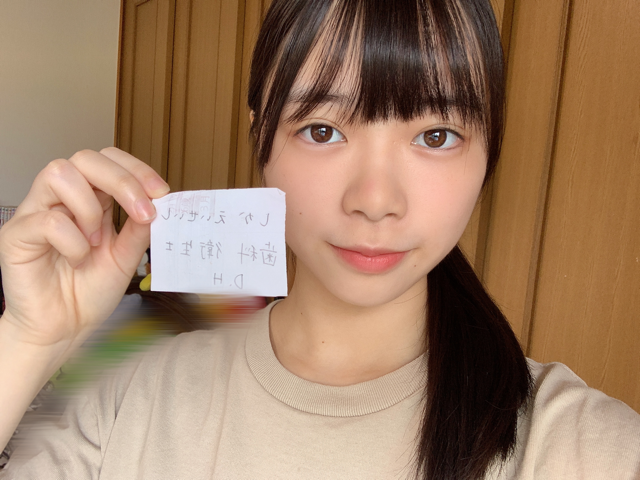 しか えいせいし
歯科 衛生士
DH